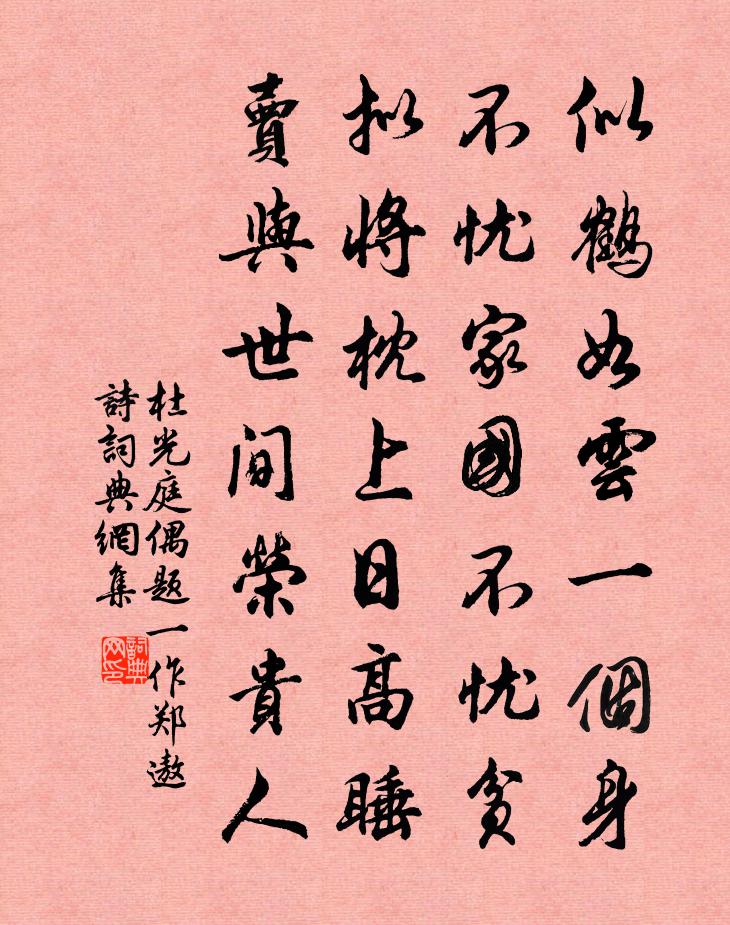 似鶴如雲一個身
不忧家國不忧貧
拟將枕上日高睡
賣與世間榮貴人
杜光庭偶题一作郑遨
詩詞典網集
詞典网印